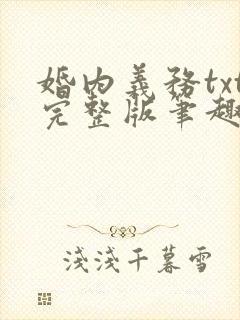 婚内義務txt
完整版筆趣
淺淺千暮雪